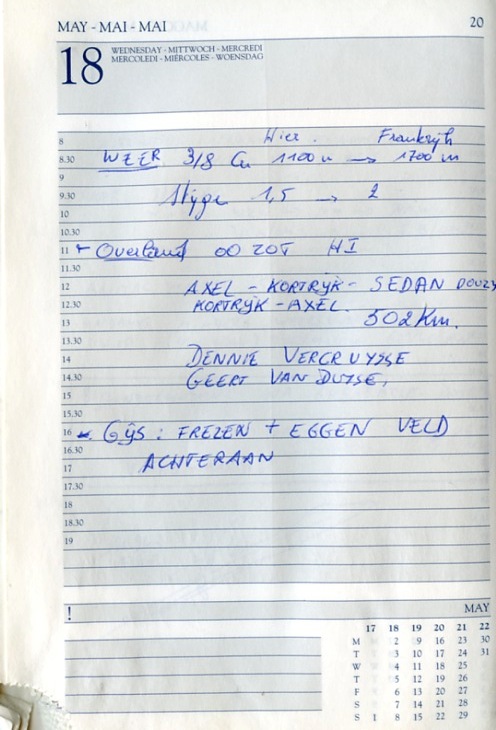 MAY - MAI - MAI 20
18 WEDNESDAY - MITTWOCH - MERCREDI
MERCOLEDI - MIÉRCOLES - WOENSDAG
Hier. Frankrijk
8
8.30 WEER 3/8 Cu 1100 m → 1700 m
9
9.30 Stijgen 1,5 → 2
10
10.30
11 Overland OO ZOT HI
11.30
12 AXEL - KORTRIJK - SEDAN DOUZY
12.30 KORTRIJK - AXEL.
13 302 Km.
13.30
14 DENNIE VERCRUYSSE
14.30 GEERT VAN DUYSE,
15
15.30
16 Gijs : FREZEN + EGGEN VELD
16.30
17 ACHTERAAN
17.30
18
18.30
19
! MAY
17 18 19 20 21 22
M 2 9 16 23 30
T 3 10 17 24 31
W 4 11 18 25
T 5 12 19 26
F 6 13 20 27
S 7 14 21 28
S 1 8 15 22 29